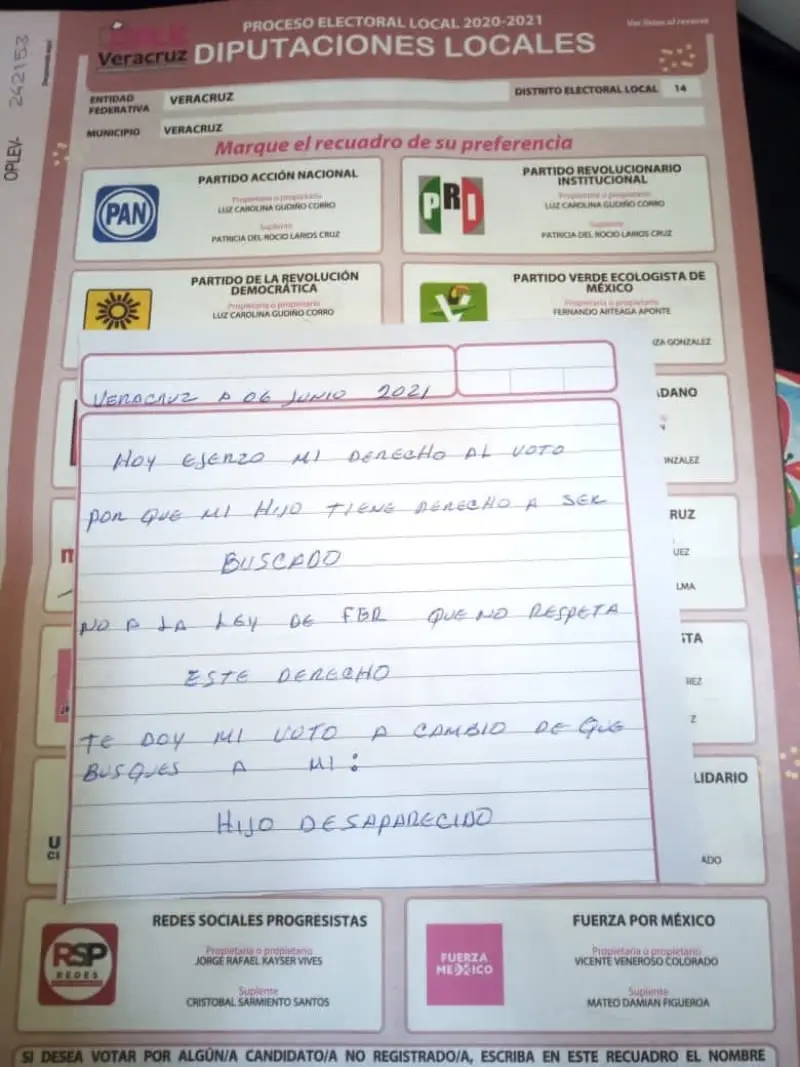 OPLEV- 242153
PROCESO ELECTORAL LOCAL 2020-2021
Ver listas al reverso
Veracruz
DIPUTACIONES LOCALES
ENTIDAD FEDERATIVA
VERACRUZ
DISTRITO ELECTORAL LOCAL 14
MUNICIPIO
VERACRUZ
Marque el recuadro de su preferencia
PAN
PARTIDO ACCIÓN NACIONAL
Propietaria o propietario
LUZ CAROLINA GUDIÑO CORRO
Suplente
PATRICIA DEL ROCIO LARIOS CRUZ
PRI
PARTIDO REVOLUCIONARIO
INSTITUCIONAL
Propietaria o propietario
LUZ CAROLINA GUDIÑO CORRO
Suplente
PATRICIA DEL ROCIO LARIOS CRUZ
PARTIDO DE LA REVOLUCIÓN
DEMOCRÁTICA
Propietaria o propietario
LUZ CAROLINA GUDIÑO CORRO
PARTIDO VERDE ECOLOGISTA DE
MÉXICO
Propietaria o propietario
FERNANDO ARTEAGA APONTE
IZA GONZALEZ
VERACRUZ A 06 JUNIO 2021
HOY EJERZO MI DERECHO AL VOTO
POR QUE MI HIJO TIENE DERECHO A SER
BUSCADO
NO A LA LEY DE FGR QUE NO RESPETA
ESTE DERECHO
TE DOY MI VOTO A CAMBIO DE QUE
BUSQUES A MI:
HIJO DESAPARECIDO
DADANO
NZALEZ
RUZ
UEZ
LMA
STA
REZ
Z
LIDARIO
ADO
U
CI
RSP
REDES
REDES SOCIALES PROGRESISTAS
Propietaria o propietario
JORGE RAFAEL KAYSER VIVES
Suplente
CRISTOBAL SARMIENTO SANTOS
FUERZA
MEXICO
FUERZA POR MÉXICO
Propietaria o propietario
VICENTE VENEROSO COLORADO
Suplente
MATEO DAMIAN FIGUEROA
SI DESEA VOTAR POR ALGÚN/A CANDIDATO/A NO REGISTRADO/A, ESCRIBA EN ESTE RECUADRO EL NOMBRE